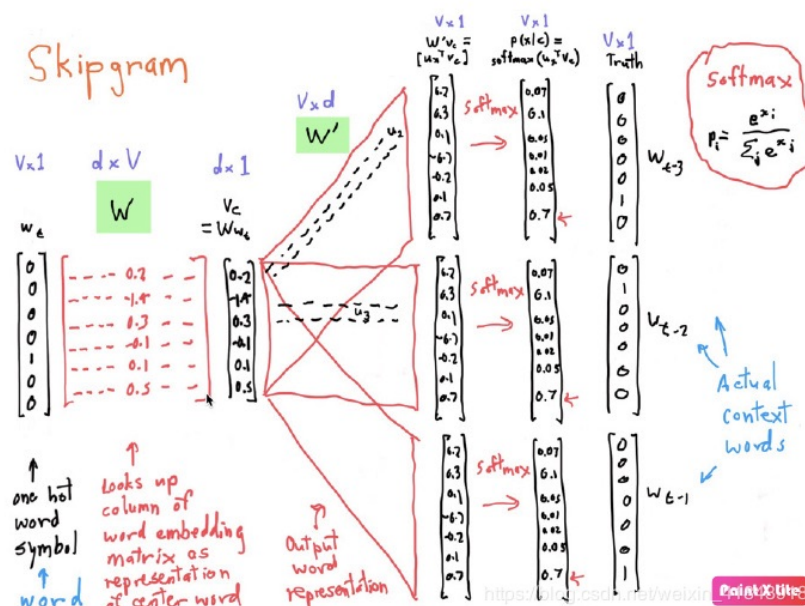 Skipgram
V×1
w_t
0
0
0
0
1
0
0
d×V
W
---- 0.2 - -
---- -1.4 - -
---- 0.3 - -
---- -0.1 - -
---- 0.1 - -
---- 0.5 - -
d×1
V_c
= Ww_t
0.2
-1.4
0.3
-0.1
0.1
0.5
V×d
W'
u_2
u_3
V×1
W'v_c =
[u_x^T v_c]
V×1
p(x|c) =
softmax(u_x^T v_c)
V×1
Truth
softmax
p_i = e^{x_i} / Σ_j e^{x_j}
0.3
0.1
-0.2
0.1
0.7
softmax
0.07
0.1
0.05
0.01
0.02
0.05
0.7
0
0
0
0
0
1
0
w_{t-3}
0.3
0.1
-0.2
0.1
0.7
softmax
0.07
0.1
0.05
0.01
0.02
0.05
0.7
0
1
0
0
0
0
0
w_{t-2}
0.3
0.1
-0.2
0.1
0.7
softmax
0.07
0.1
0.05
0.01
0.02
0.05
0.7
0
0
0
0
0
0
1
w_{t-1}
Actual
context
words
one hot
word
symbol
word
Looks up
column of
word embedding
matrix as
representation
of center word
Output
word
representation
https://blog.csdn.net/weixin
Paint X Lite